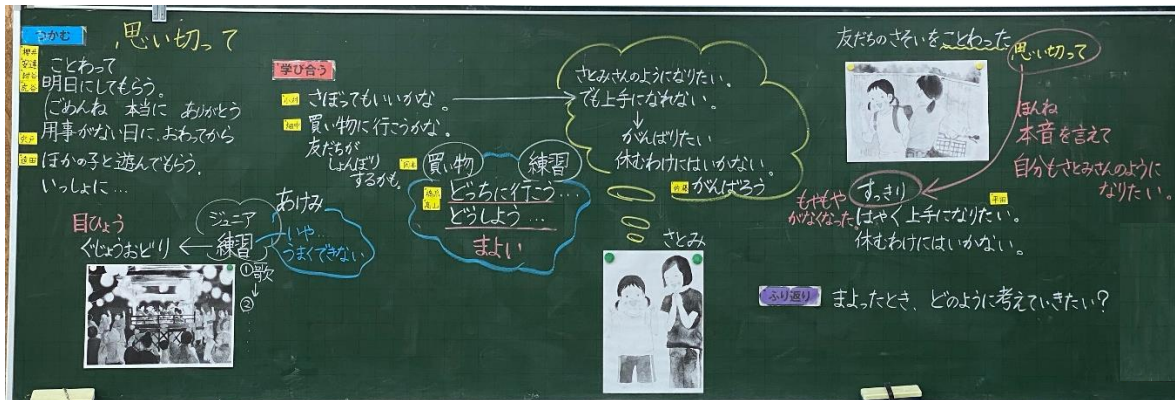 つかむ
思い切って
ことわって
明日にしてもらう。
(ごめんね 本当に ありがとう
用事がない日に、おわってから
ほかの子と遊んでもらう。
いっしょに…
目ひょう
ぐじょうおどり
ジュニア
練習
①歌
②
あけみ
いや…
うまくできない
学び合う
さぼってもいいかな。
買い物に行こうかな。
友だちが
しょんぼり
するかも。
買い物
練習
どっちに行こう…
どうしよう…
まよい
さとみさんのようになりたい。
でも上手になれない。
がんばりたい
休むわけにはいかない。
がんばろう
さとみ
友だちのさそいをことわった
思い切って
ほんね
本音を言えて
自分もさとみさんのように
なりたい。
すっきり
もやもや
がなくなった
はやく上手になりたい。
休むわけにはいかない。
平田
ふり返り
まよったとき、どのように考えていきたい?